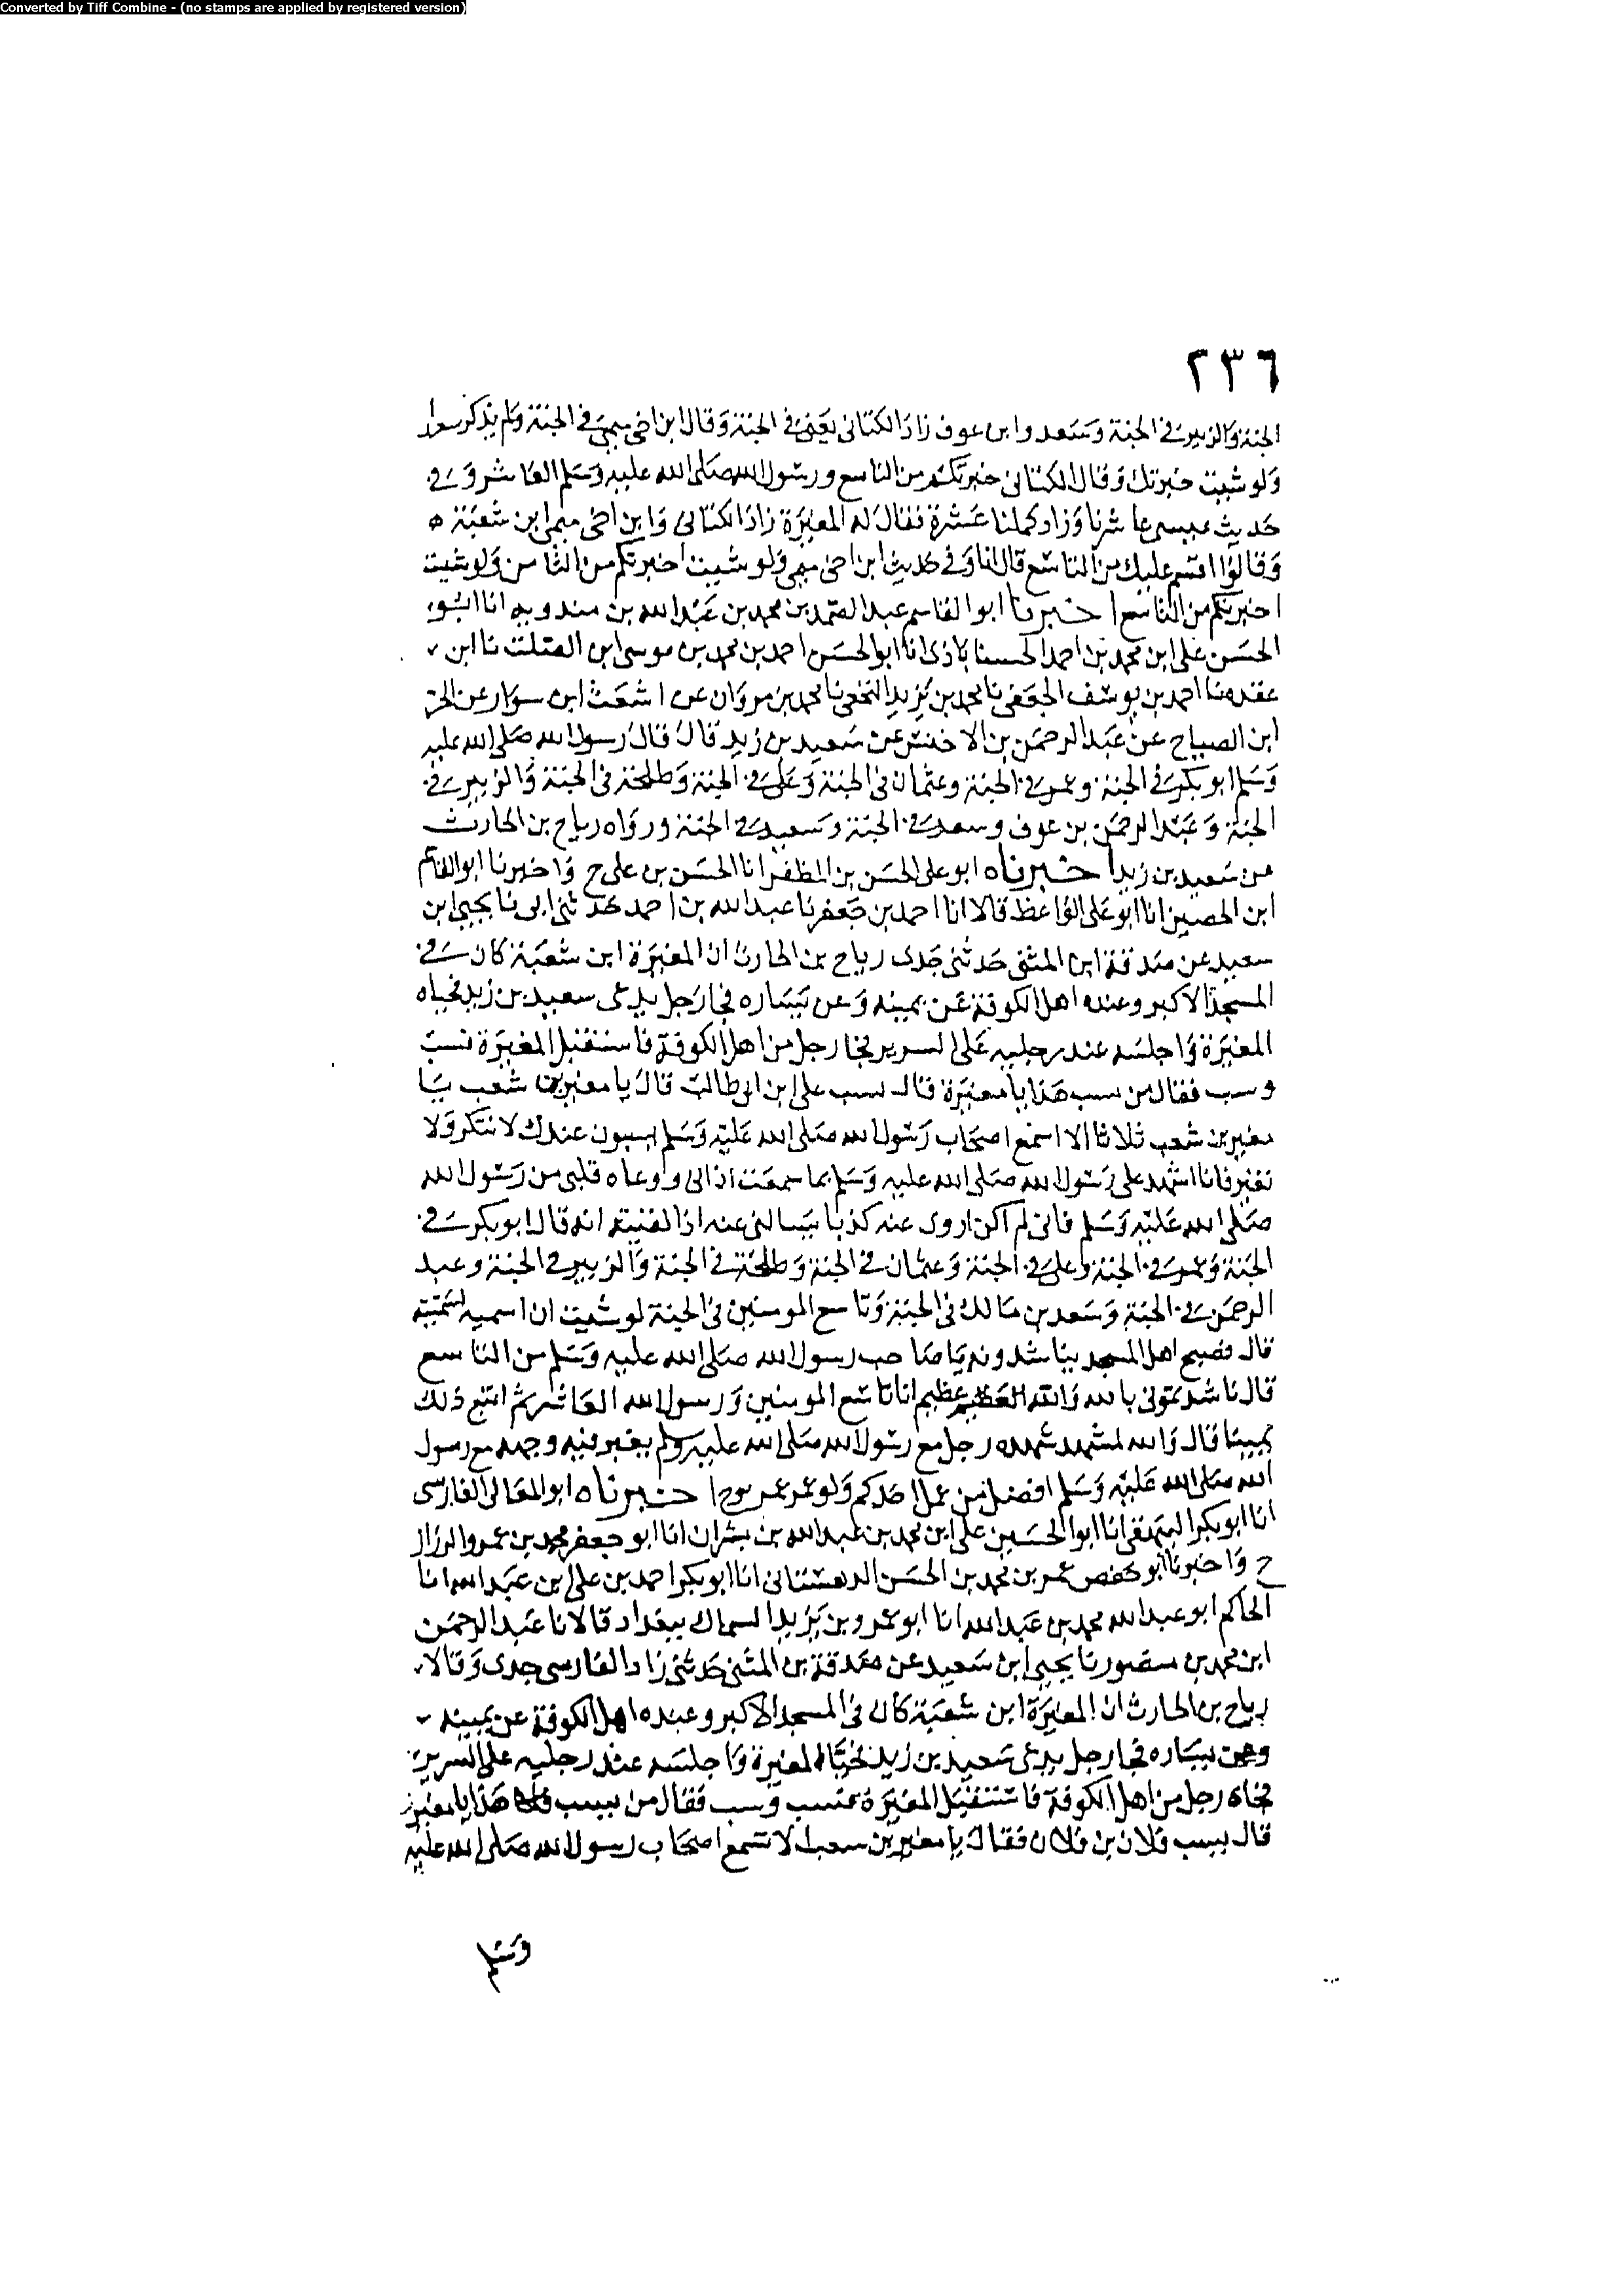 Converted by Tiff Combine - (no stamps are applied by registered version)
٢٣٦
الجنة والزبير في الجنة وسعد وابن عوف زاد الكتاني يعني في الجنة وقال ابن اخي ميمي في الجنة ولم يذكر سعدا
ولو شيت خبرتك وقال الكتاني خبرتكم من التاسع ورسول الله صلى الله عليه وسلم العاشر وفي
حديث عيسى عاشرنا وزاد كملنا عشرة فقال له المغيرة زاد الكتاني وابن اخي ميمي ابن شعبة ه
وقالوا اقسم عليك من التاسع قال انا وفي حديث ابن اخي ميمي ولو شيت اخبرتكم من الثامن ولو شيت
اخبرتكم من التاسع اخبرنا ابو القاسم عبد الصمد بن محمد بن عبد الله بن مندويه انا ابو
الحسن علي ابن محمد بن احمد الحسناباذي انا ابو الحسن احمد بن محمد بن موسى ابن الصلت نا ابن
عقده نا احمد بن يوسف الجعفي نا محمد بن يزيد النخعي نا محمد بن مروان عن اشعث ابن سوار عن الحر
ابن الصياح عن عبد الرحمن بن الاخنس عن سعيد بن زيد قال قال رسول الله صلى الله عليه
وسلم ابو بكر في الجنة وعمر في الجنة وعثمان في الجنة وعلي في الجنة وطلحة في الجنة والزبير في
الجنة وعبد الرحمن بن عوف وسعد في الجنة وسعيد في الجنة ورواه رياح بن الحارث
عن سعيد بن زيد اخبرناه ابو علي الحسن بن المظفر انا الحسن بن علي ح واخبرنا ابو القاسم
ابن الحصين انا ابو علي الواعظ قالا انا احمد بن جعفر نا عبد الله بن احمد حدثني ابي نا يحيى ابن
سعيد عن صدقة ابن المثنى حدثني جدي رياح بن الحارث ان المغيرة ابن شعبة كان في
المسجد الاكبر وعنده اهل الكوفة عن يمينه وعن يساره فجا رجل يدعى سعيد بن زيد فحياه
المغيرة واجلسه عند رجليه على السرير فجا رجل من اهل الكوفة فاستقبل المغيرة فسب
وسب فقال من يسب هذا يا مغيرة قال يسب علي ابن ابي طالب قال يا مغير بن شعب يا
مغير بن شعب ثلاثا الا اسمع اصحاب رسول الله صلى الله عليه وسلم يسبون عندك لا تنكر ولا
تغير فانا اشهد على رسول الله صلى الله عليه وسلم بما سمعت اذناي ووعاه قلبي من رسول الله
صلى الله عليه وسلم فاني لم اكن اروي عنه كذبا يسالني عنه اذا لقيته انه قال ابو بكر في
الجنة وعمر في الجنة وعلي في الجنة وعثمان في الجنة وطلحة في الجنة والزبير في الجنة وعبد
الرحمن في الجنة وسعد بن مالك في الجنة وتاسع المومنين في الجنة لو شيت ان اسميه لسميته
قال فضج اهل المسجد يناشدونه يا صاحب رسول الله صلى الله عليه وسلم من التاسع
قال ناشدتموني بالله والله العظيم عظيم انا تاسع المومنين ورسول الله العاشر ثم اتبع ذلك
يمينا قال والله لمشهد شهده رجل مع رسول الله صلى الله عليه وسلم يغبر فيه وجهه مع رسول
الله صلى الله عليه وسلم افضل من عمل احدكم ولو عمر عمر نوح اخبرناه ابو المعالي الفارسي
انا ابو بكر البيهقي انا ابو الحسين علي ابن محمد بن عبد الله بن بشران انا ابو جعفر محمد بن عمرو الرزاز
ح واخبرنا ابو حفص عمر بن محمد بن الحسن الدهستاني انا ابو بكر احمد بن علي ابن عبد الله انا
الحاكم ابو عبد الله محمد بن عبد الله انا ابو عمرو بن يزيد السماك ببغداد قالا نا عبد الرحمن
ابن محمد بن منصور نا يحيى ابن سعيد عن صدقة بن المثنى حدثني زاد الفارسي جدي وقالا
رياح بن الحارث ان المغيرة ابن شعبة كان في المسجد الاكبر وعنده اهل الكوفة عن يمينه
وعن يساره فجا رجل يدعى سعيد بن زيد فحياه المغيرة واجلسه عند رجليه على السرير
فجاه رجل من اهل الكوفة فاستقبل المغيرة فسب وسب فقال من يسب هذا يا مغير
قال يسب فلان بن فلان فقال يا مغير بن شعب الا تسمع اصحاب رسول الله صلى الله عليه
وسلم